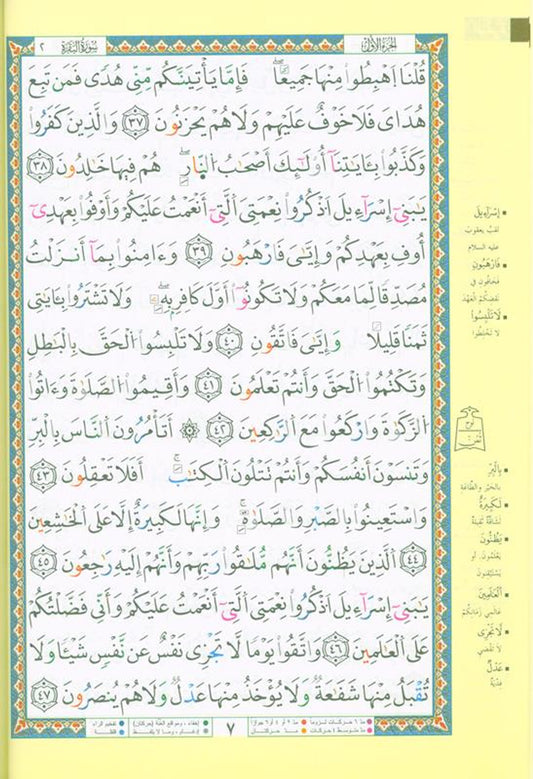 الجزء الأول
سورة البقرة
٢
قُلْنَا اَهْبِطُوا مِنْهَا جَمِيعًا فَإِمَّا يَأْتِيَنَّكُم مِّنِّى هُدًى فَمَن تَبِعَ
هُدَاىَ فَلَا خَوْفٌ عَلَيْهِمْ وَلَا هُمْ يَحْزَنُونَ ٣٧ وَالَّذِينَ كَفَرُوا
وَكَذَّبُوا بِـَٔايَٰتِنَآ أُولَٰٓئِكَ أَصْحَٰبُ النَّارِ هُمْ فِيهَا خَٰلِدُونَ ٣٨
يَٰبَنِىٓ إِسْرَآءِيلَ اَذْكُرُوا نِعْمَتِىَ الَّتِىٓ أَنْعَمْتُ عَلَيْكُمْ وَأَوْفُوا بِعَهْدِىٓ
أُوفِ بِعَهْدِكُمْ وَإِيَّٰىَ فَارْهَبُونِ ٣٩ وَءَامِنُوا بِمَآ أَنزَلْتُ
مُصَدِّقًا لِّمَا مَعَكُمْ وَلَا تَكُونُوٓا أَوَّلَ كَافِرٍۭ بِهِۦ وَلَا تَشْتَرُوا بِـَٔايَٰتِى
ثَمَنًا قَلِيلًا وَإِيَّٰىَ فَاتَّقُونِ ٤٠ وَلَا تَلْبِسُوا الْحَقَّ بِالْبَٰطِلِ
وَتَكْتُمُوا الْحَقَّ وَأَنتُمْ تَعْلَمُونَ ٤١ وَأَقِيمُوا الصَّلَوٰةَ وَءَاتُوا
الزَّكَوٰةَ وَارْكَعُوا مَعَ الرَّٰكِعِينَ ٤٢ ۞ أَتَأْمُرُونَ النَّاسَ بِالْبِرِّ
وَتَنسَوْنَ أَنفُسَكُمْ وَأَنتُمْ تَتْلُونَ الْكِتَٰبَ أَفَلَا تَعْقِلُونَ ٤٣
وَاسْتَعِينُوا بِالصَّبْرِ وَالصَّلَوٰةِ وَإِنَّهَا لَكَبِيرَةٌ إِلَّا عَلَى الْخَٰشِعِينَ
٤٤ الَّذِينَ يَظُنُّونَ أَنَّهُم مُّلَٰقُوا رَبِّهِمْ وَأَنَّهُمْ إِلَيْهِ رَٰجِعُونَ ٤٥
يَٰبَنِىٓ إِسْرَآءِيلَ اَذْكُرُوا نِعْمَتِىَ الَّتِىٓ أَنْعَمْتُ عَلَيْكُمْ وَأَنِّى فَضَّلْتُكُمْ
عَلَى الْعَٰلَمِينَ ٤٦ وَاتَّقُوا يَوْمًا لَّا تَجْزِى نَفْسٌ عَن نَّفْسٍ شَيْـًٔا وَلَا
تُقْبَلُ مِنْهَا شَفَٰعَةٌ وَلَا يُؤْخَذُ مِنْهَا عَدْلٌ وَلَا هُمْ يُنصَرُونَ ٤٧
إِسْرَآءِيلَ
لقب يعقوب
عليه السلام
فَارْهَبُونِ
فخافون في
نقضكم العهد
لَا تَلْبِسُوا
لا تخلطوا
ثمن
بِالْبِرِّ
بالخير والطاعة
لَكَبِيرَةٌ
لشاقة ثقيلة
يَظُنُّونَ
يعلمون أو
يستيقنون
الْعَٰلَمِينَ
عالمي زمانكم
لَا تَجْزِى
لا تقضي
عَدْلٌ
فدية
مدّ ٦ حركات لزوماً
مدّ ٢ أو ٤ أو ٦ جوازاً
مدّ حركتان
إخفاء، ومواقع الغنّة (حركتان)
إدغام، وما لا يلفظ
تفخيم الراء
قلقلة
٧